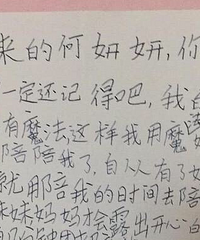 来的何妍妍,你
一定还记得吧,我自
有魔法,这样我用魔法
陪陪我了,自从有了妹
就用陪我的时间去陪
妹妹妈妈才会露出开心的